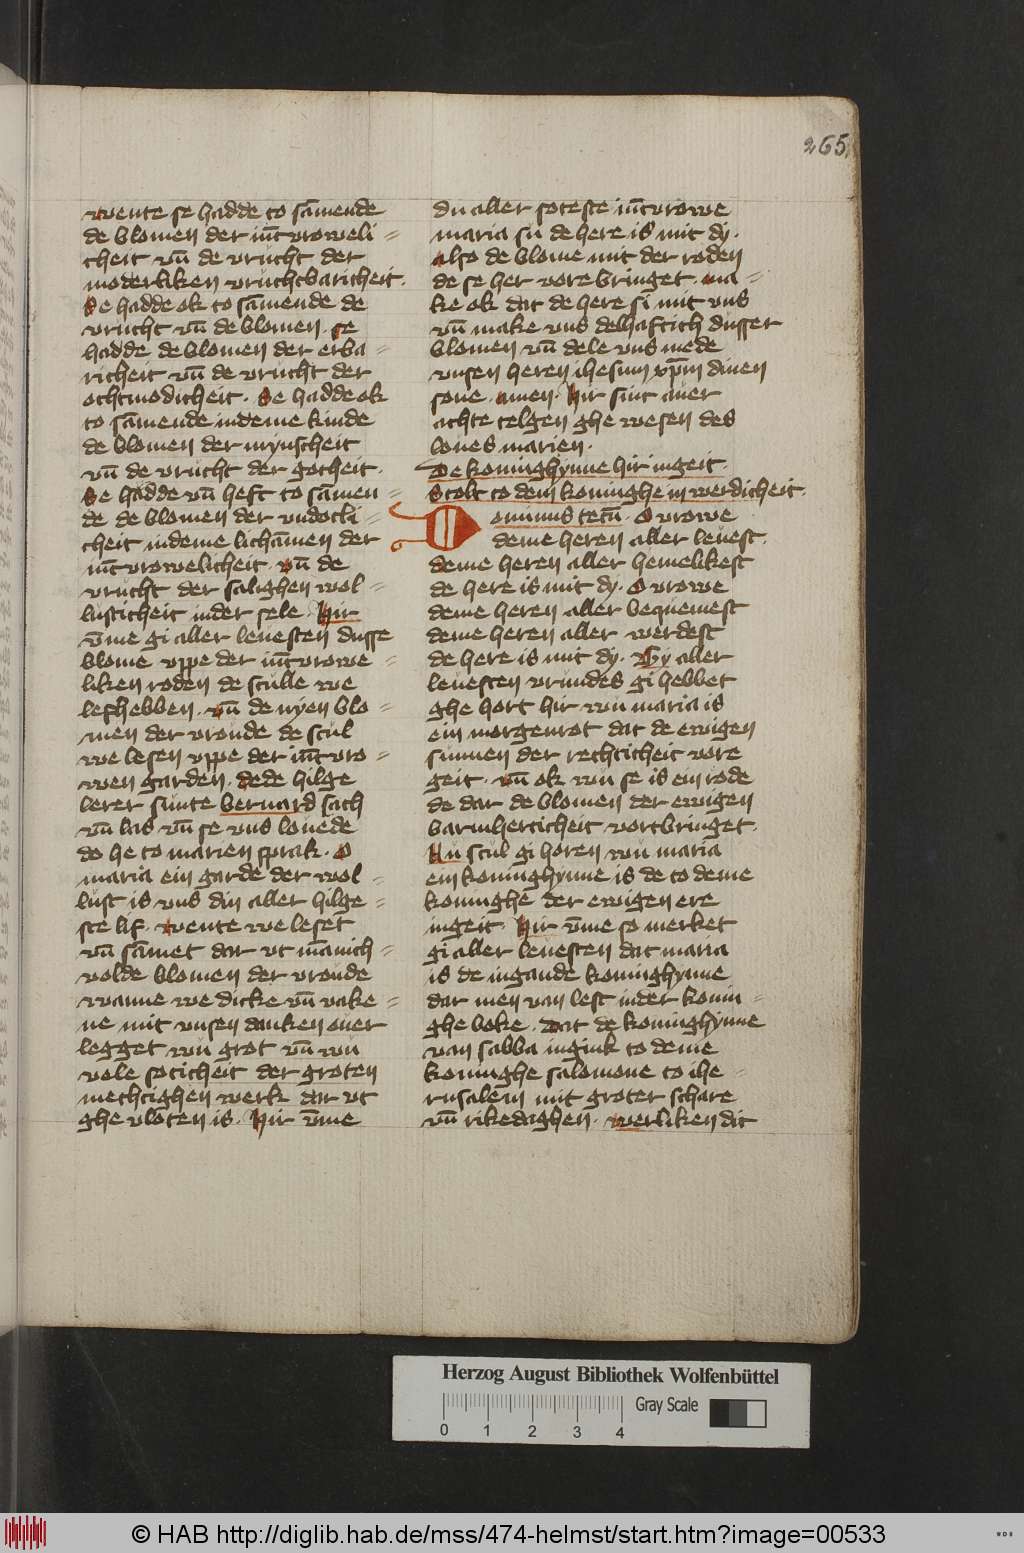 265
wente se hadde to sāmende
de blomen der iūcvroweli=
cheit vn̄ de vrucht der
moderliken vruchtbaricheit.
Se hadde ok to sāmende de
vrucht vn̄ de blomen. se
hadde de blomen der erba=
richeit vn̄ de vrucht der
othmodicheit. Se hadde ok
to sāmende indeme kinde
de blomen der mynscheit
vn̄ de vrucht der gotheit.
Se hadde vn̄ heft to sāmen=
de de blomen der vndotli=
cheit indeme lichāmen der
iūcvrowelicheit. vn̄ de
vrucht der salighen wol=
lusticheit inder sele. Hir
v̄me gi aller leuesten dusse
blome vppe der iūcvrowe=
liken roden de sculle we
lefhebben. vn̄ de nyen blo=
men der vroude de scul
we lesen vppe der iūcvro=
wen garden. dede hilge
lerer sunte bernard sach
vn̄ las vn̄ se vns louede
do he to marien sprak. O
maria ein garde der wol=
lust is vns din aller hilge=
ste lif. wente we leset
vn̄ sāmet dar vt mānich=
volde blomen der vroude
wanne we dicke vn̄ vake=
ne mit vnsen danken ouer
legget wu grot vn̄ wu
vole soticheit der groten
mechtighen werk dar vt
ghe vloten is. Hir v̄me
du aller soteste iūcvrowe
maria su de here is mit dy.
also de blome mit der roden
de se her vore bringet. ma=
ke ok dat de here si mit vns
vn̄ make vns delhaftich dusser
blomen vn̄ dele vns mede
vnsen heren ihesum xp̄m dinen
sone. amen. Hir sint auer
achte telgen ghe wesen des
loues marien.
De koninghynne hir ingeit.
Stolt to dem koninghe in werdicheit.
Dominus tecū. O vrowe
deme heren aller leuest.
deme heren aller hemelikest
de here is mit dy. O vrowe
deme heren aller bequemest
deme heren aller werdest
de here is mit dy. Gy aller
leuesten vrundes gi hebbet
ghe hort hir wu maria is
ein morgenrot dat de ewigen
sunnen der rechticheit vore
geit. vn̄ ok wu se is ein rode
de dar de blomen der ewigen
barmherticheit vortbringet.
Nu scul gi horen wu maria
ein koninghynne is de to deme
koninghe der ewigen ere
ingeit. Hir v̄me so merket
gi aller leuesten dat maria
is de ingande koninghynne
dar men van lest inder konin=
ghe boke. Dat de koninghynne
van sabba ingink to deme
koninghe salomone to ihe=
rusalem mit groter schare
vn̄ rikedaghen. verliken dit
Herzog August Bibliothek Wolfenbüttel
0 1 2 3 4
Gray Scale
© HAB http://diglib.hab.de/mss/474-helmst/start.htm?image=00533
WDB